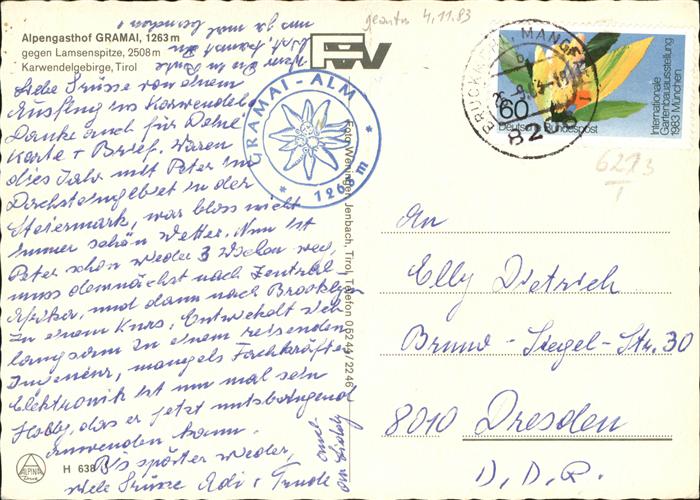 Alpengasthof GRAMAI, 1263 m
gegen Lamsenspitze, 2508 m
Karwendelgebirge, Tirol
Liebe Grüsse von einem
Ausflug ins Karwendel.
Danke auch für Deine
Karte + Brief. Waren
dies Jahr mit Peter im
Dachsteingebiet in der
Steiermark, war bloss nicht
immer schön Wetter. Nun ist
Peter schon wieder 3 Wochen weg,
muss demnächst nach Zentral-
Afrika, und dann nach Brooklyn
zu einem Kurs. Entwickelt sich
langsam zu einem reisenden
Ingenieur, mangels Fachkräfte.
Elektronik ist nun mal sein
Hobby, das er jetzt nutzbringend
anwenden kann.
Bis später wieder,
viele Grüsse Adi + Trude
GRAMAI-ALM
* 1263 m *
Foto Weninger, Jenbach, Tirol, Telefon 05244/2246
geantw 4.11.83
BRUCKMÜHL, MANGF
b
8206
60
Deutsche Bundespost
Internationale
Gartenbauausstellung
1983 München
6273
1
An
Elly Dietrich
Bruno-Siegel-Str. 30
8010 Dresden
D.D.R.
ALPINA
H 638